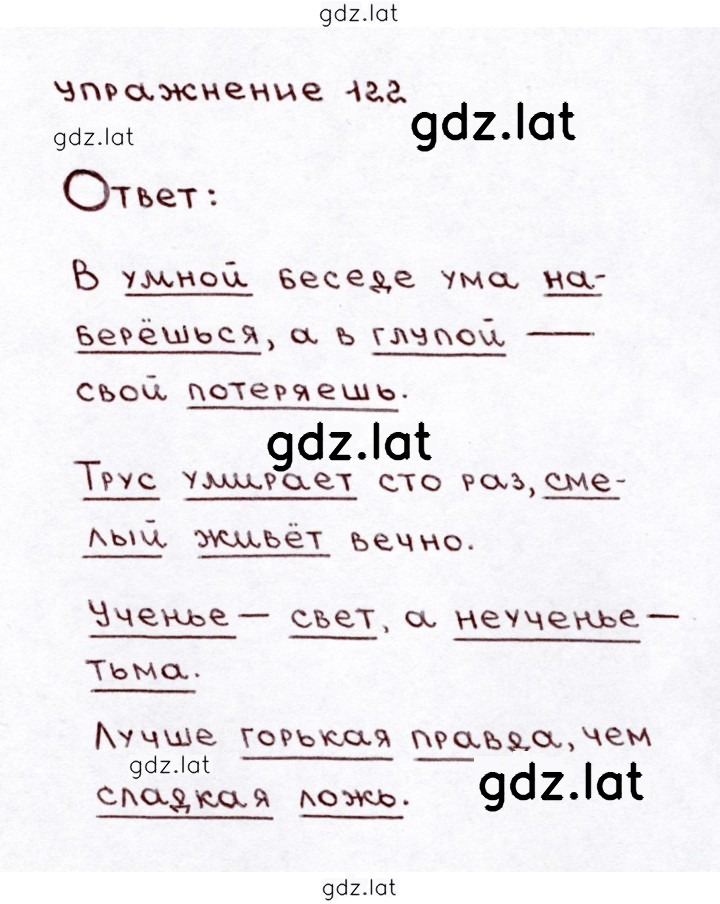 gdz.lat
упражнение 122
gdz.lat
gdz.lat
Ответ:
В умной беседе ума на-
берёшься, а в глупой —
свой потеряешь.
gdz.lat
Трус умирает сто раз, сме-
лый живёт вечно.
Ученье — свет, а неученье —
тьма.
Лучше горькая правда, чем
gdz.lat
сладкая ложь.
gdz.lat
gdz.lat